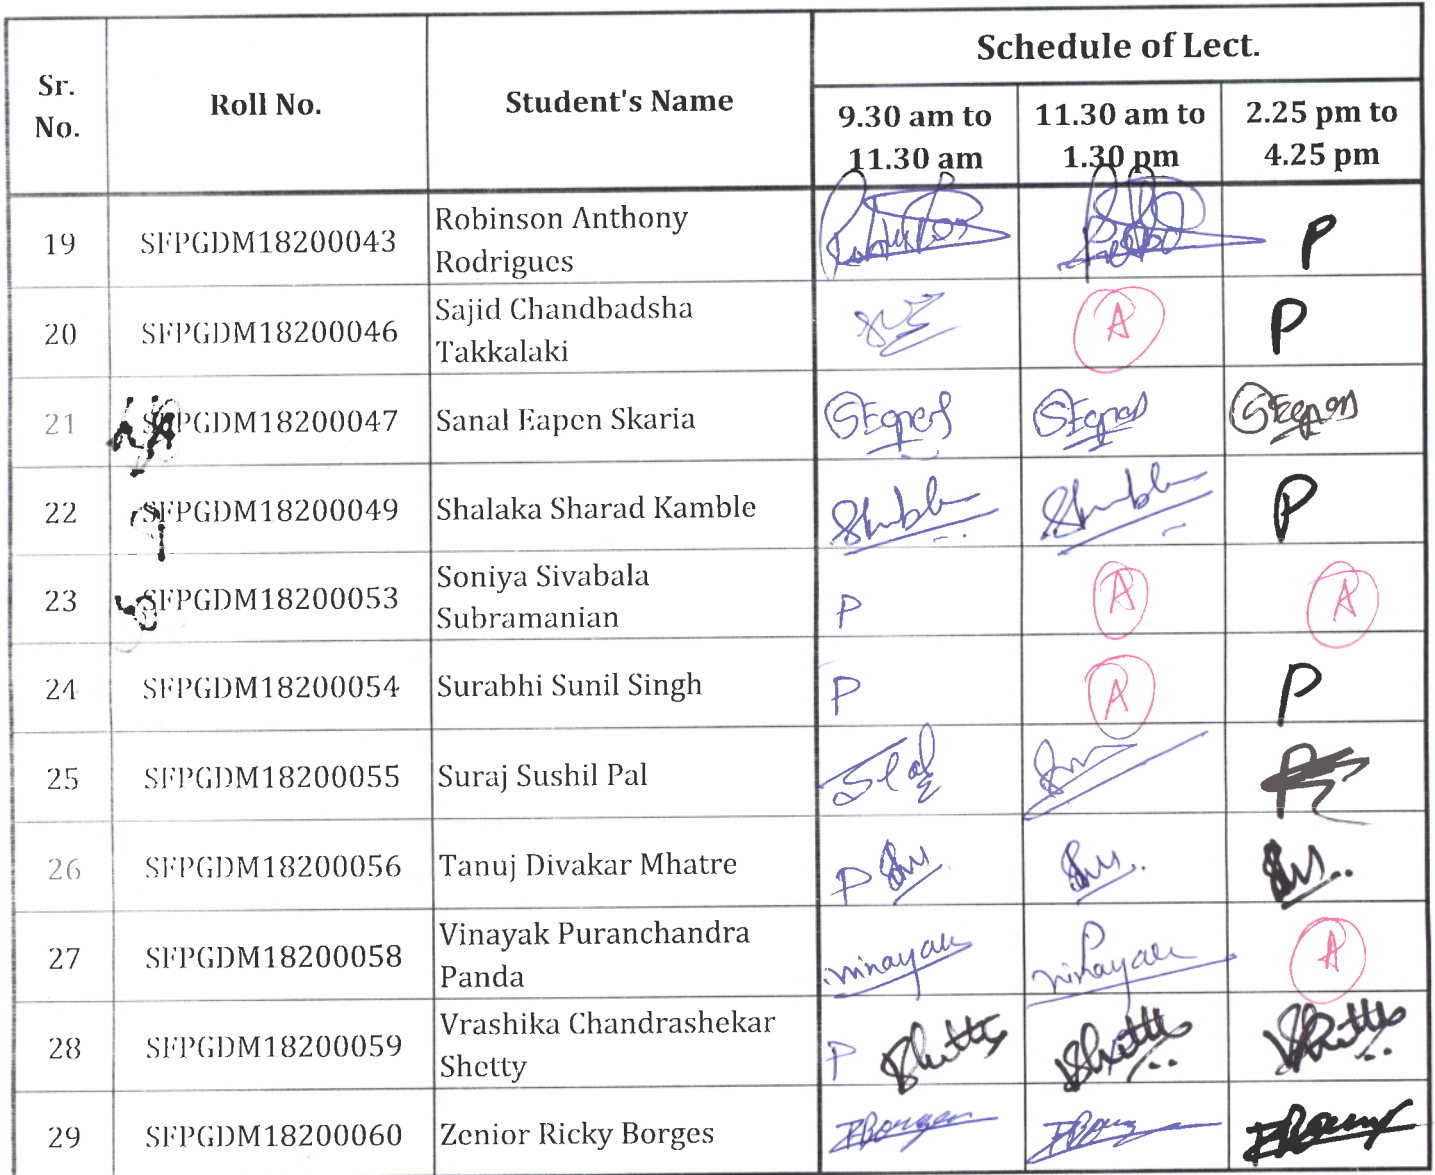 Sr. No.
Roll No.
Student's Name
Schedule of Lect.
9.30 am to 11.30 am
11.30 am to 1.30 pm
2.25 pm to 4.25 pm
19 SFPGDM18200043 Robinson Anthony Rodrigues P
20 SFPGDM18200046 Sajid Chandbadsha Takkalaki A P
21 SFPGDM18200047 Sanal Eapen Skaria
22 SFPGDM18200049 Shalaka Sharad Kamble P
23 SFPGDM18200053 Soniya Sivabala Subramanian P A A
24 SFPGDM18200054 Surabhi Sunil Singh P A P
25 SFPGDM18200055 Suraj Sushil Pal
26 SFPGDM18200056 Tanuj Divakar Mhatre P
27 SFPGDM18200058 Vinayak Puranchandra Panda vinayak vinayak A
28 SFPGDM18200059 Vrashika Chandrashekar Shetty P
29 SFPGDM18200060 Zenior Ricky Borges